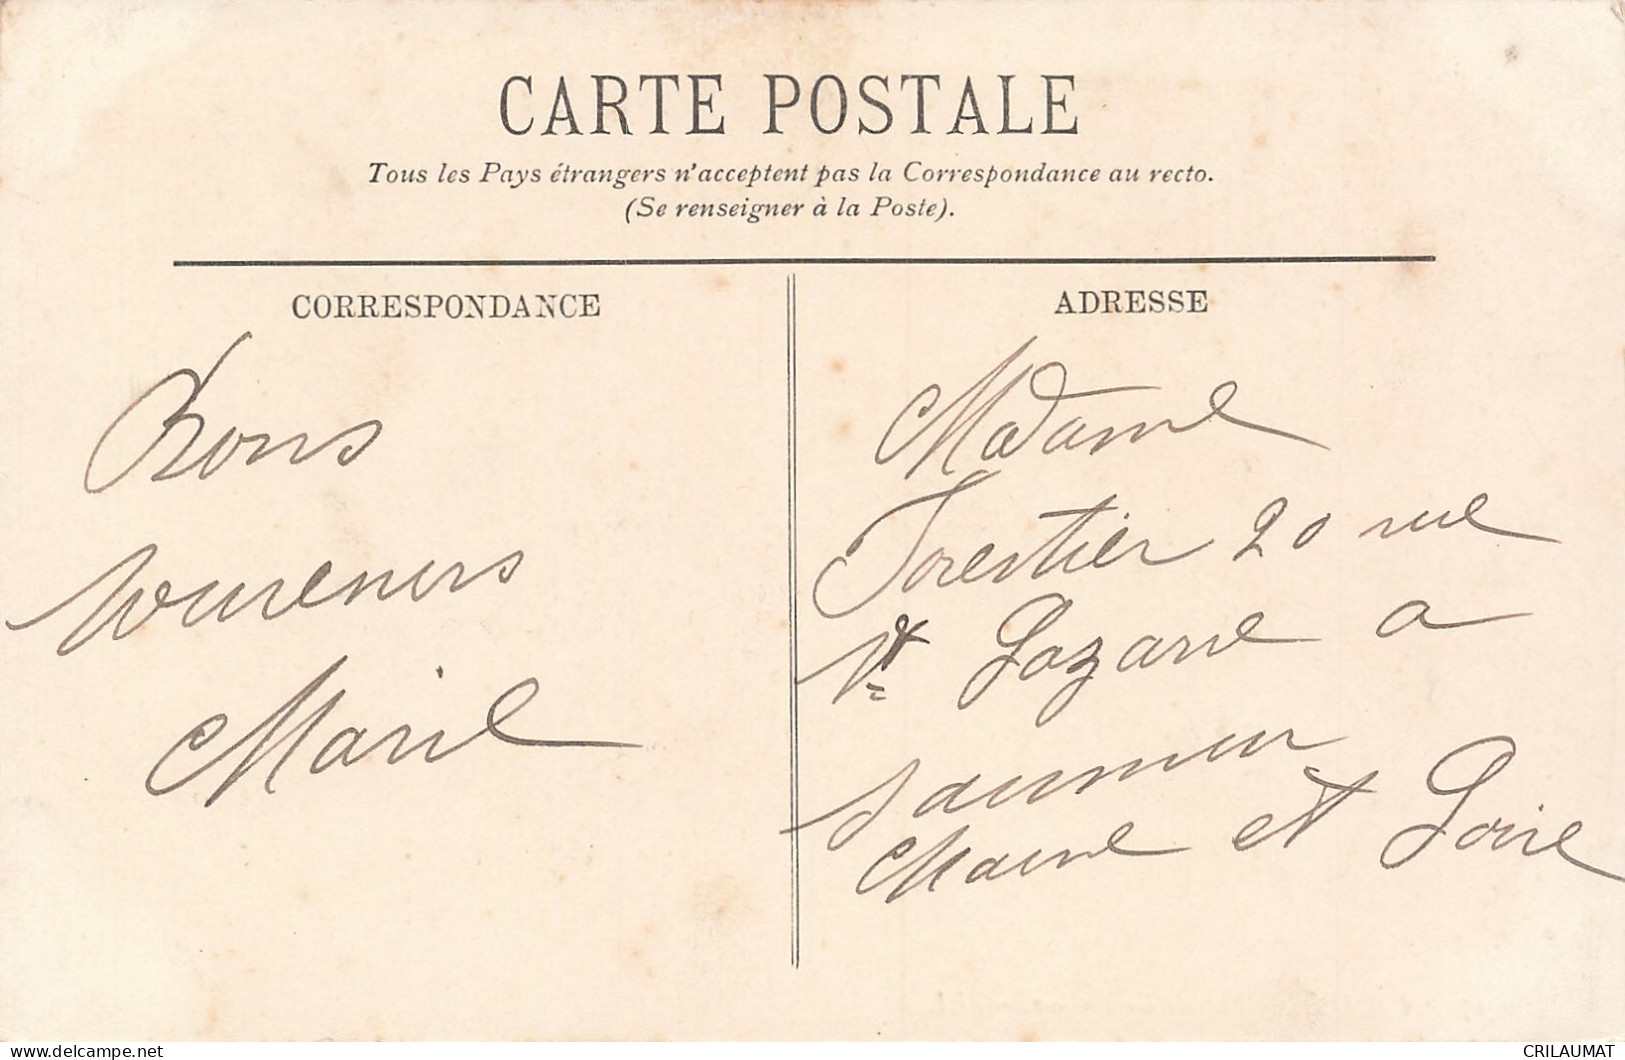 CARTE POSTALE
Tous les Pays étrangers n'acceptent pas la Correspondance au recto.
(Se renseigner à la Poste).
CORRESPONDANCE
Bons
souvenirs
Marie
ADRESSE
Madame
Forestier 20 rue
St Lazare a
Saumur
Maine et Loire
delcampe.net
CRILAUMAT